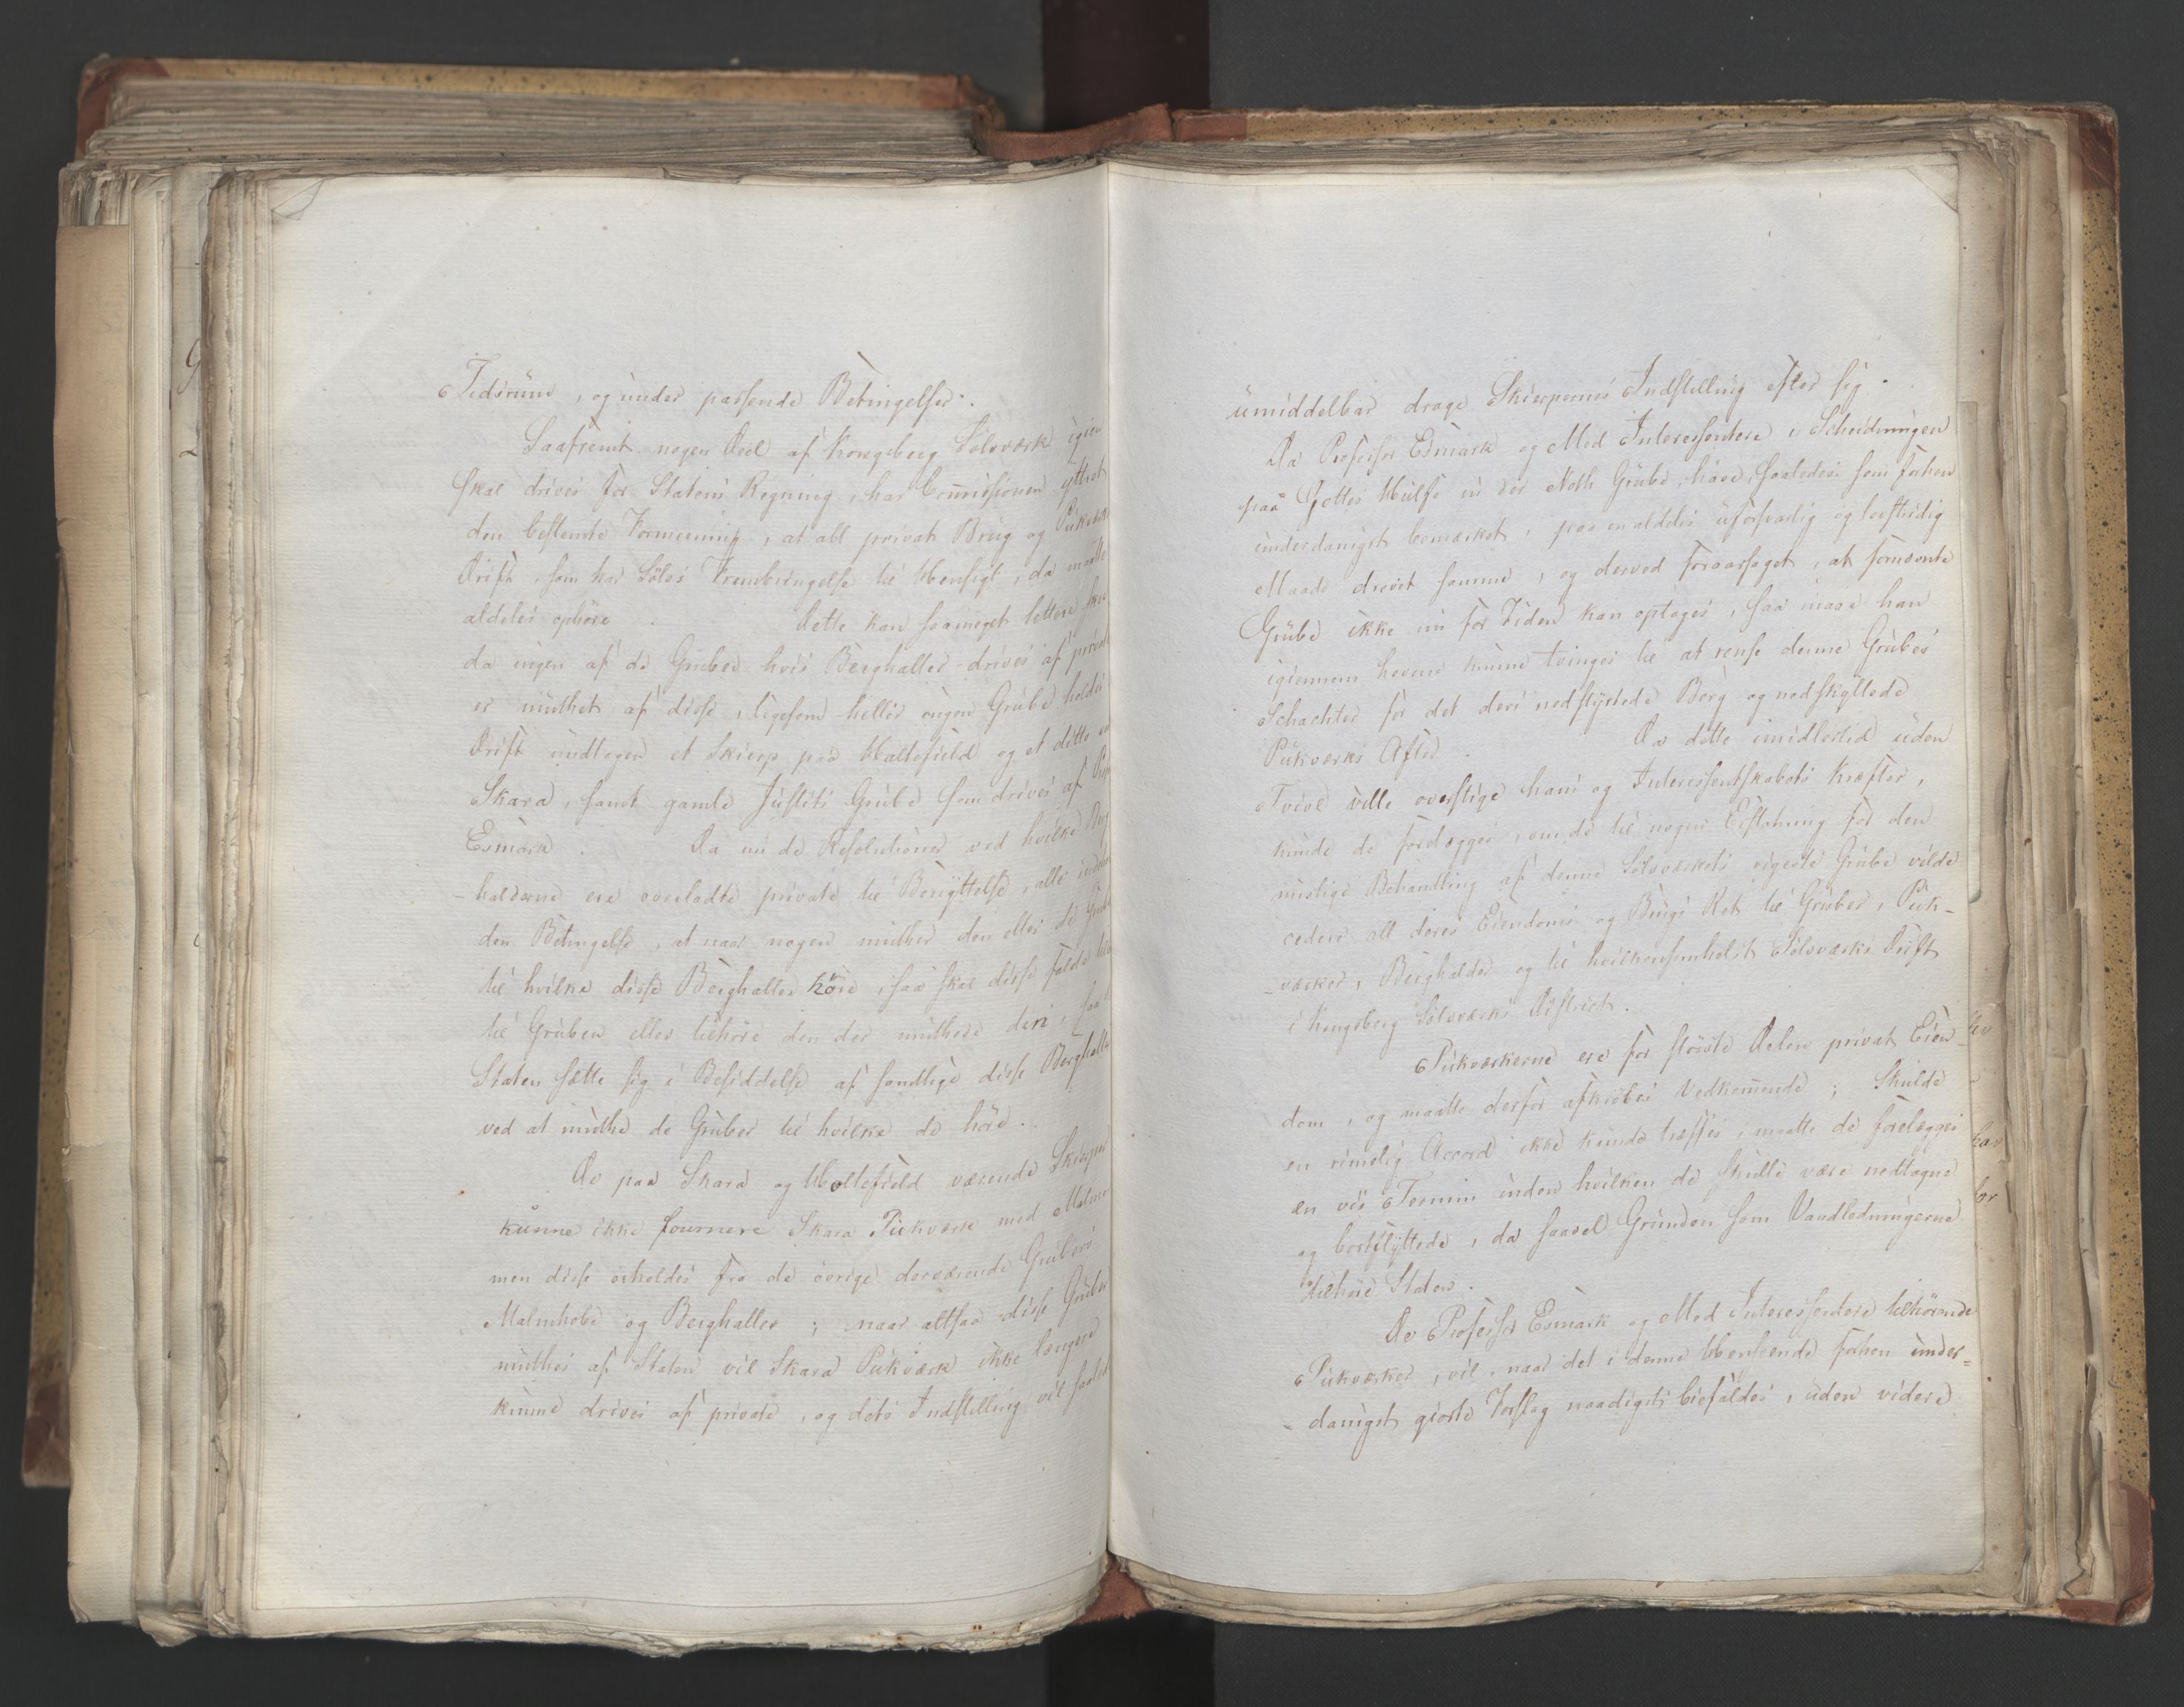 Tidsrum, og under passende Betingelser.
Saafremt nogen Deel af Kongsberg Sølvværk igien
skal drives for Statens Regning, har Commissionen yttret
den bestemte Formeening, at alt privat Brug og Pukværk
Drift, som har Sølvs Frembringelse til Hensigt, da maatte
aldeles ophøre. Dette kan saameget lettere skee
da ingen af de Gruber hvis Berghalder drives af private
er muthet af disse, ligesom heller ingen Grube holdes
Drift undtagen et Skierp paa Haltefield og et ditto
Skara, samt gamle Justits Grube som drives af
Esmark. Da nu de Resolutioner ved hvilke
halderne ere overladte private til Benyttelse, alle
den Betingelse, at naar nogen muther den eller de
til hvilke disse Berghalder höre, saa skal disse falde
til Gruben eller tilhøre den der muthede den,
Staten sætte sig i Besiddelse af samtlige disse Berghalder
ved at muthe de Gruber til hvilke de höre.
De paa Skara og Haltefield værende Skierper
kunne ikke fournere Skara Pukværk med Malm
men disse erholdes fra de övrige derværende Grubers
Malmhobe og Berghalder; naar altsaa disse Gruber
muthes af Staten vil Skara Pukværk ikke længere
kunne drives af private, og dets Indstilling vil
umiddelbar drage Skierpernes Indstilling efter sig.
Da Professor Esmark og Med Interessentere i Scheidningen
paa Gottes Hülfe in der Noth Grube, have, saaledes som forhen
underdanigst bemærket, paa en aldeles uforsvarlig og lovstridig
Maade drevet samme, og derved foraarsaget, at förnævnte
Grube ikke nu for Tiden kan optages, saa maae han
igiennem Lovene kunne tvinges til at rense denne Grubes
Schachter for det deri nedstyrtede Berg og nedskyllede
Pukværks After. Da dette imidlertid uden
Tvivl ville overstige hans og Interessentskabets Kræfter,
kunde de forelægges, om de til nogen Erstatning for den
uristige Behandling af denne Sølvværkets vigeste Grube vilde
cedere all deres Eiendoms og Brugs Ret til Gruber, Puk-
-værker, Berghalder og til hvilkensomhelst Sølvværks Drift
i Kongsberg Sölvværks District.
Pukværkerne ere for störste Delen privat Eien-
dom, og maatte derfor afkiøbes Vedkommende; Skulde
en rimelig Accord ikke kunde træffes, maatte de forelægges
en vis Termin inden hvilken de skulle være nedtagne
og bortflyttede, da saavel Grunden som Vandledningerne
tilhøre Staten.
De Professor Esmark og Med Interessentere tilhörende
Pukværker, vil, naar det i denne Henseende forhen under-
-danigst giorte Forslag naadigst biefaldes, uden videre